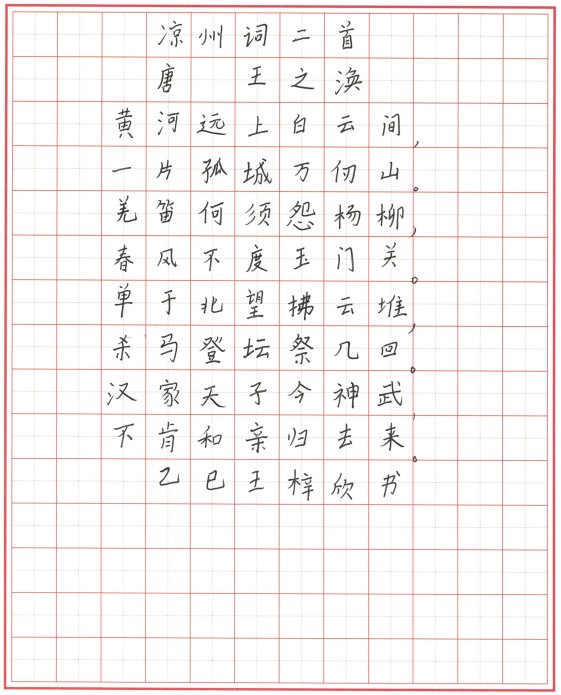 凉州词二首
唐 王之涣
黄河远上白云间,
一片孤城万仞山。
羌笛何须怨杨柳,
春风不度玉门关。
单于北望拂云堆,
杀马登坛祭几回。
汉家天子今神武,
不肯和亲归去来。
乙巳王梓欣书